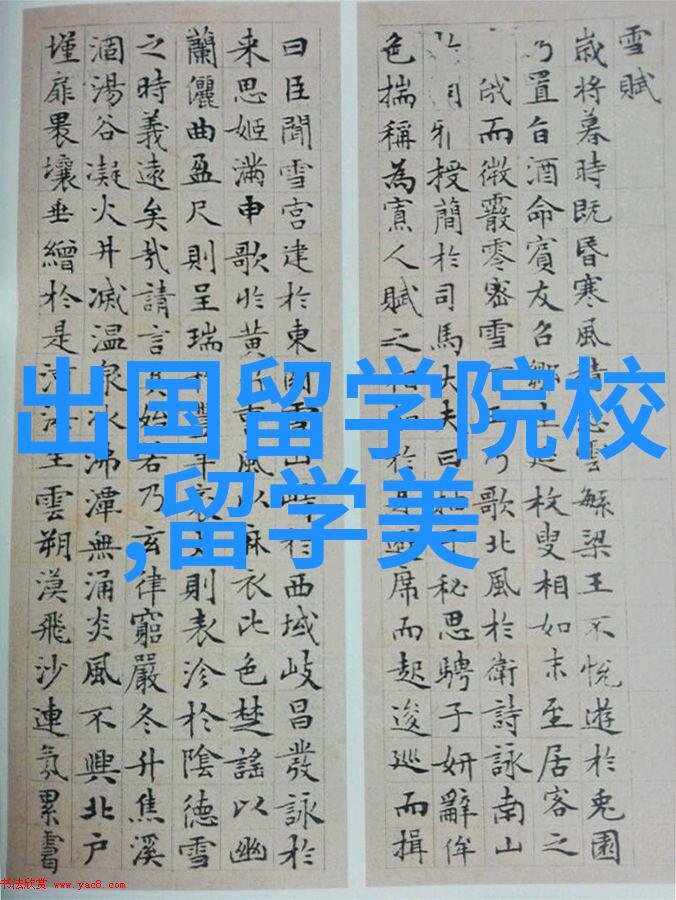 雪賦
歲將暮時既昏寒風愁雲繁梁王不悅遊於兎園
乃置旨酒命賓友召鄒生延枚叟相如末至居客之
俄而微霰零密雪王乃歌北風於衛詩詠南山
雅授簡於司馬大夫曰抽子秘思騁子妍辭侔
色揣稱為寡人賦之相於是避席而起逡巡而揖
曰臣聞雪宮建於東國雪山峙於西域岐昌發詠於
来思姬滿申歌於黃竹曹風以麻衣比色楚謠以幽
蘭儷曲盈尺則呈瑞於豐年袤丈則表沴於陰德雪
之時義遠矣哉請言其始若乃玄律窮嚴冬升焦溪
涸湯谷凝火井滅温泉冰沸潭無涌炎風不興北户
墐扉壤垂繒於是河海生雲朔漠飛沙連氛累靄
出国留学院校
,留学美
书法欣赏 www.yac8.com